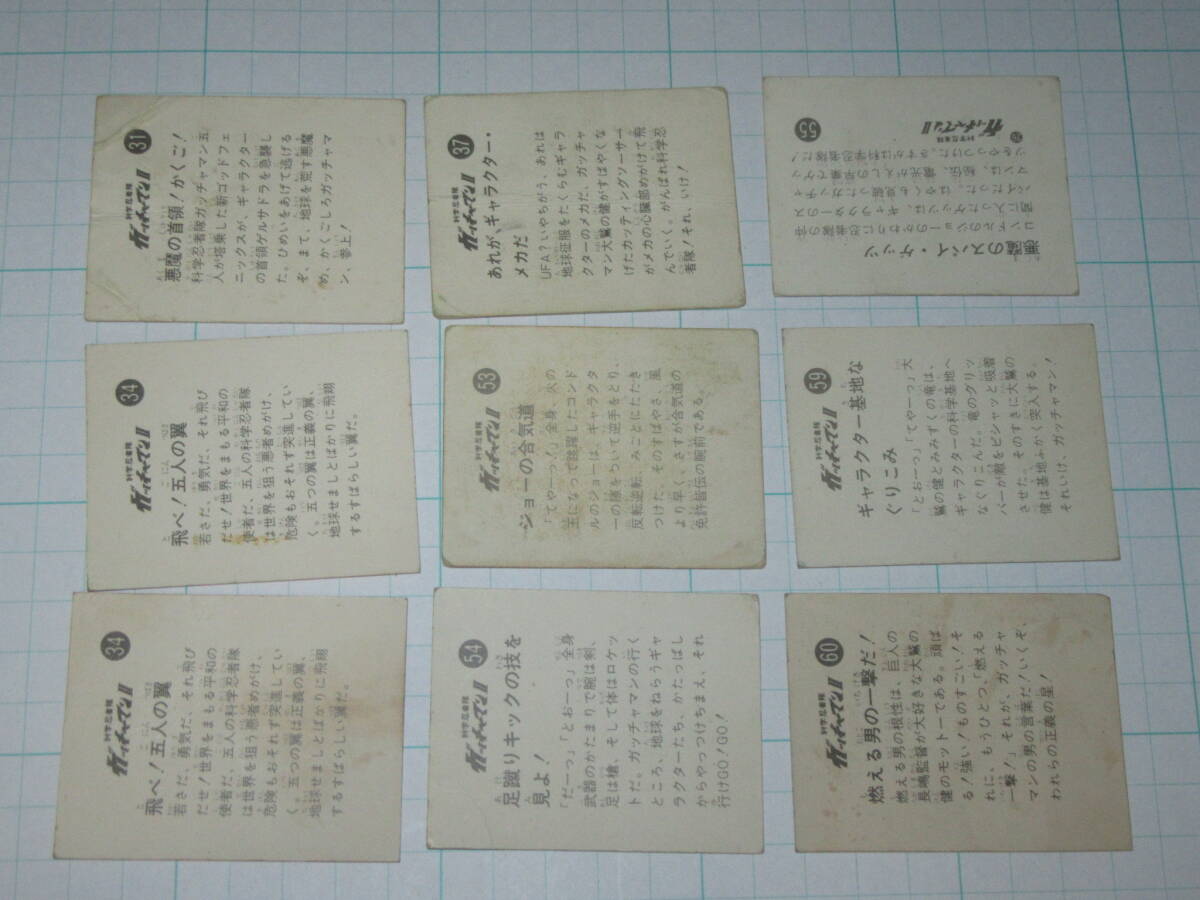 31
科学忍者隊
ガッチャマンII
悪魔の首領!かくご!
科学忍者隊ガッチャマン五
人が塔乗した新ゴッドフェ
ニックスが、ギャラクター
の首領ゲルサドラを急襲し
た。ひめいをあげて逃げる
ぞ、まて、地球を荒す悪魔
め、かくごしろガッチャマ
ン、参上!
37
科学忍者隊
ガッチャマンII
あれが、ギャラクター・
メカだ
UFA?いやちがう、あれは
地球征服をたくらむギャラ
クターのメカだ、ガッチャ
マン大鷲の健がすばやくな
げたカッティングソーサー
がメカの心臓部めがけて飛
んでいく。がんばれ科学忍
者隊!それ、いけ!
55
科学忍者隊
ガッチャマンII
のスパイ・ゲッツ
34
科学忍者隊
ガッチャマンII
飛べ!五人の翼
若さだ、勇気だ、それ飛び
だせ!世界をまもる平和の
使者だ、五人の科学忍者隊
は世界を狙う悪者めがけ、
危険もおそれず突進してい
く。五つの翼は正義の翼、
地球せましとばかりに飛翔
するすばらしい翼だ。
53
科学忍者隊
ガッチャマンII
ジョーの合気道
「てやーっ!」全身、火の
玉になって跳躍したコンド
ルのジョーは、ギャラクタ
ーの腰をついて逆手をとり、
反転逆転、みごとにたたき
つけた。そのすばやさ、風
より早く、さすが合気道の
免許皆伝の腕前である。
59
科学忍者隊
ガッチャマンII
ギャラクター基地な
ぐりこみ
「とおーっ」「てやーっ」大
鷲の健とみみずくの竜は、
ギャラクターの科学基地へ
なぐりこんだ。竜のグリッ
パーが敵をビシャッと吸着
させた。そのすきに大鷲の
健は基地ふかく突入する。
それいけ、ガッチャマン!
34
科学忍者隊
ガッチャマンII
飛べ!五人の翼
若さだ、勇気だ、それ飛び
だせ!世界をまもる平和の
使者だ、五人の科学忍者隊
は世界を狙う悪者めがけ、
危険もおそれず突進してい
く。五つの翼は正義の翼、
地球せましとばかりに飛翔
するすばらしい翼だ。
54
科学忍者隊
ガッチャマンII
足蹴りキックの技を
見よ!
「だーっ」「とおーっ」全身
武器のかたまりで腕は剣、
足は槍、そして体はロケッ
トだ。ガッチャマンの行く
ところ、地球をねらうギャ
ラクターたち、かたっぱし
からやっつけちまえ、それ
行けGO!GO!
60
科学忍者隊
ガッチャマンII
燃える男の一撃だ!
燃える男の根性は、巨人の
長嶋監督が大好きな大鷲の
健のモットーである。頑ば
る!強い!ものすごい!そ
れに、もうひとつ、「燃える
一撃!」それが、ガッチャ
マンの男の言葉だ!いくぞ、
われらの正義の星!